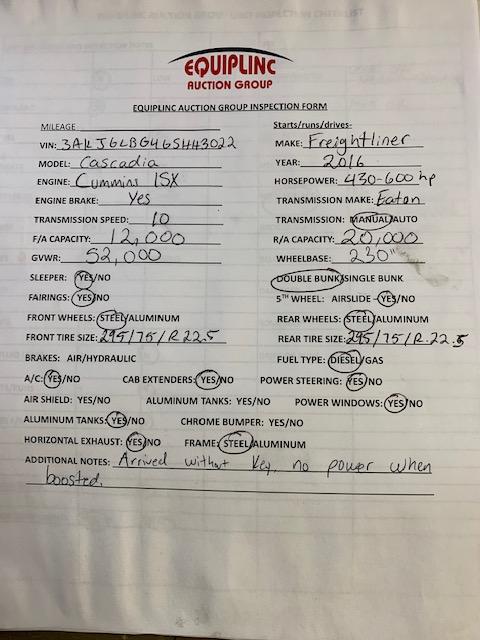 EQUIPLINC
AUCTION GROUP
EQUIPLINC AUCTION GROUP INSPECTION FORM
MILEAGE
Starts/runs/drives-
VIN: 3AKJGLBG46SHH3022
MAKE: Freightliner
MODEL: Cascadia
YEAR: 2016
ENGINE: Cummins ISX
HORSEPOWER: 430-600 hp
ENGINE BRAKE: Yes
TRANSMISSION MAKE: Eaton
TRANSMISSION SPEED: 10
TRANSMISSION: MANUAL/AUTO
F/A CAPACITY: 12,000
R/A CAPACITY: 20,000
GVWR: 52,000
WHEELBASE: 230"
SLEEPER: YES/NO
DOUBLE BUNK/SINGLE BUNK
FAIRINGS: YES/NO
5TH WHEEL: AIRSLIDE –YES/NO
FRONT WHEELS: STEEL/ALUMINUM
REAR WHEELS: STEEL/ALUMINUM
FRONT TIRE SIZE: 295/75/R22.5
REAR TIRE SIZE: 295/75/R.22.5
BRAKES: AIR/HYDRAULIC
FUEL TYPE: DIESEL/GAS
A/C: YES/NO CAB EXTENDERS: YES/NO POWER STEERING: YES/NO
AIR SHIELD: YES/NO ALUMINUM TANKS: YES/NO POWER WINDOWS: YES/NO
ALUMINUM TANKS: YES/NO CHROME BUMPER: YES/NO
HORIZONTAL EXHAUST: YES/NO FRAME: STEEL/ALUMINUM
ADDITIONAL NOTES: Arrived without Key, no power when
boosted.